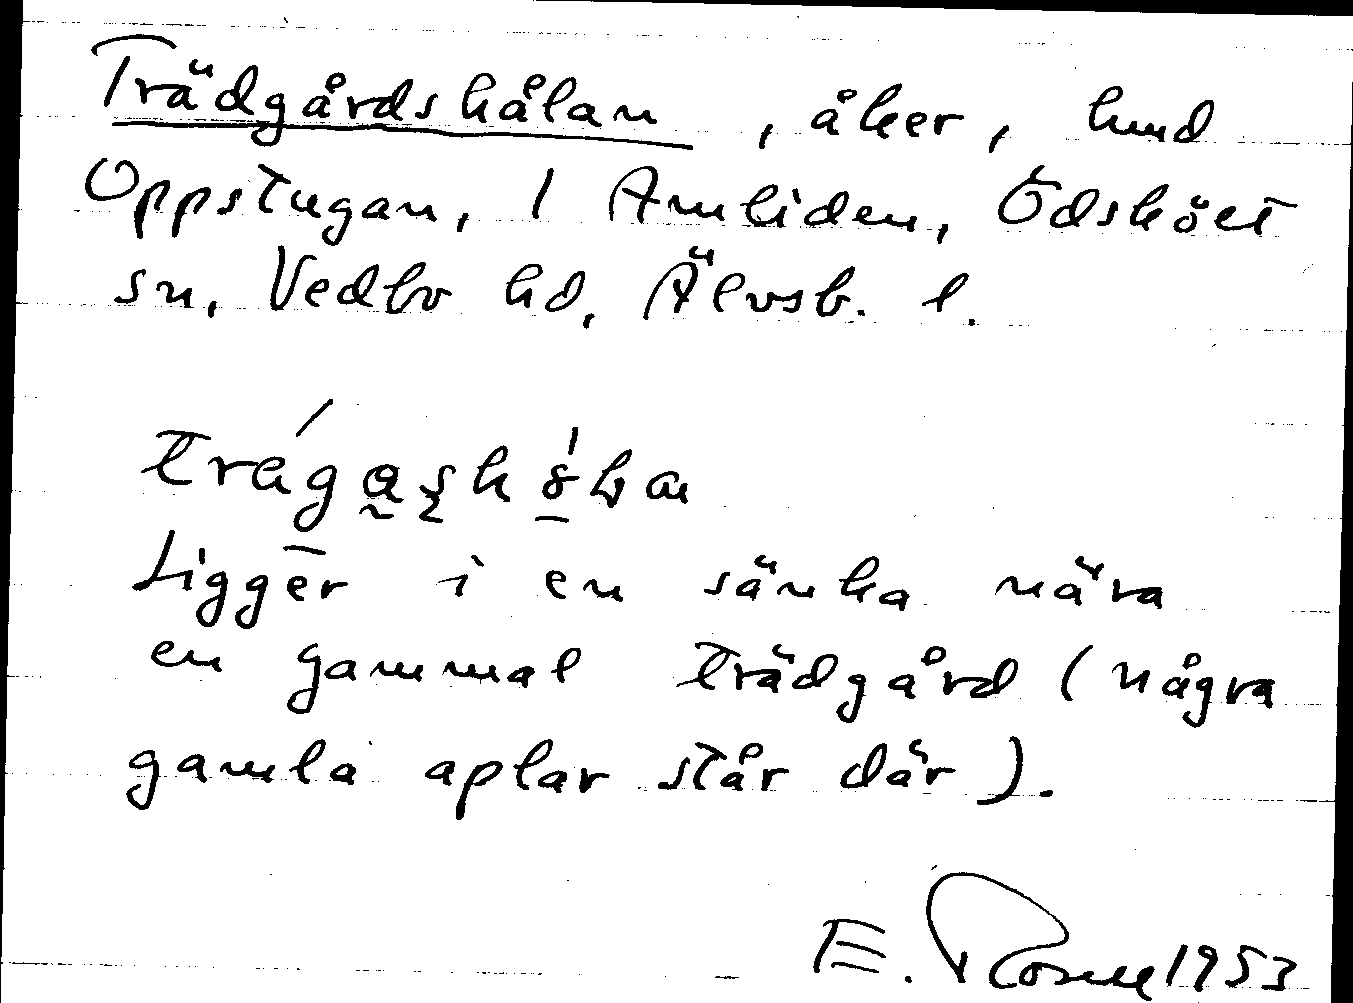 Trädgårdshålan, åker, hmd
Oppstugan, 1 Amliden, Ödsköet
sn, Vedbo hd, Älvsb. l.
Ligger i en sänka nära
en gammal trädgård (några
gamla aplar står där).
E. 1953